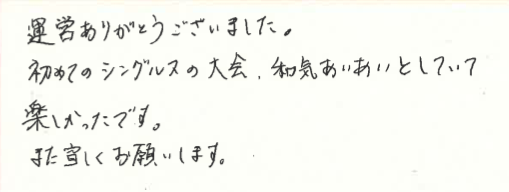 運営ありがとうございました。
初めてのシングルスの大会、和気あいあいとしていて
楽しかったです。
また宜しくお願いします。